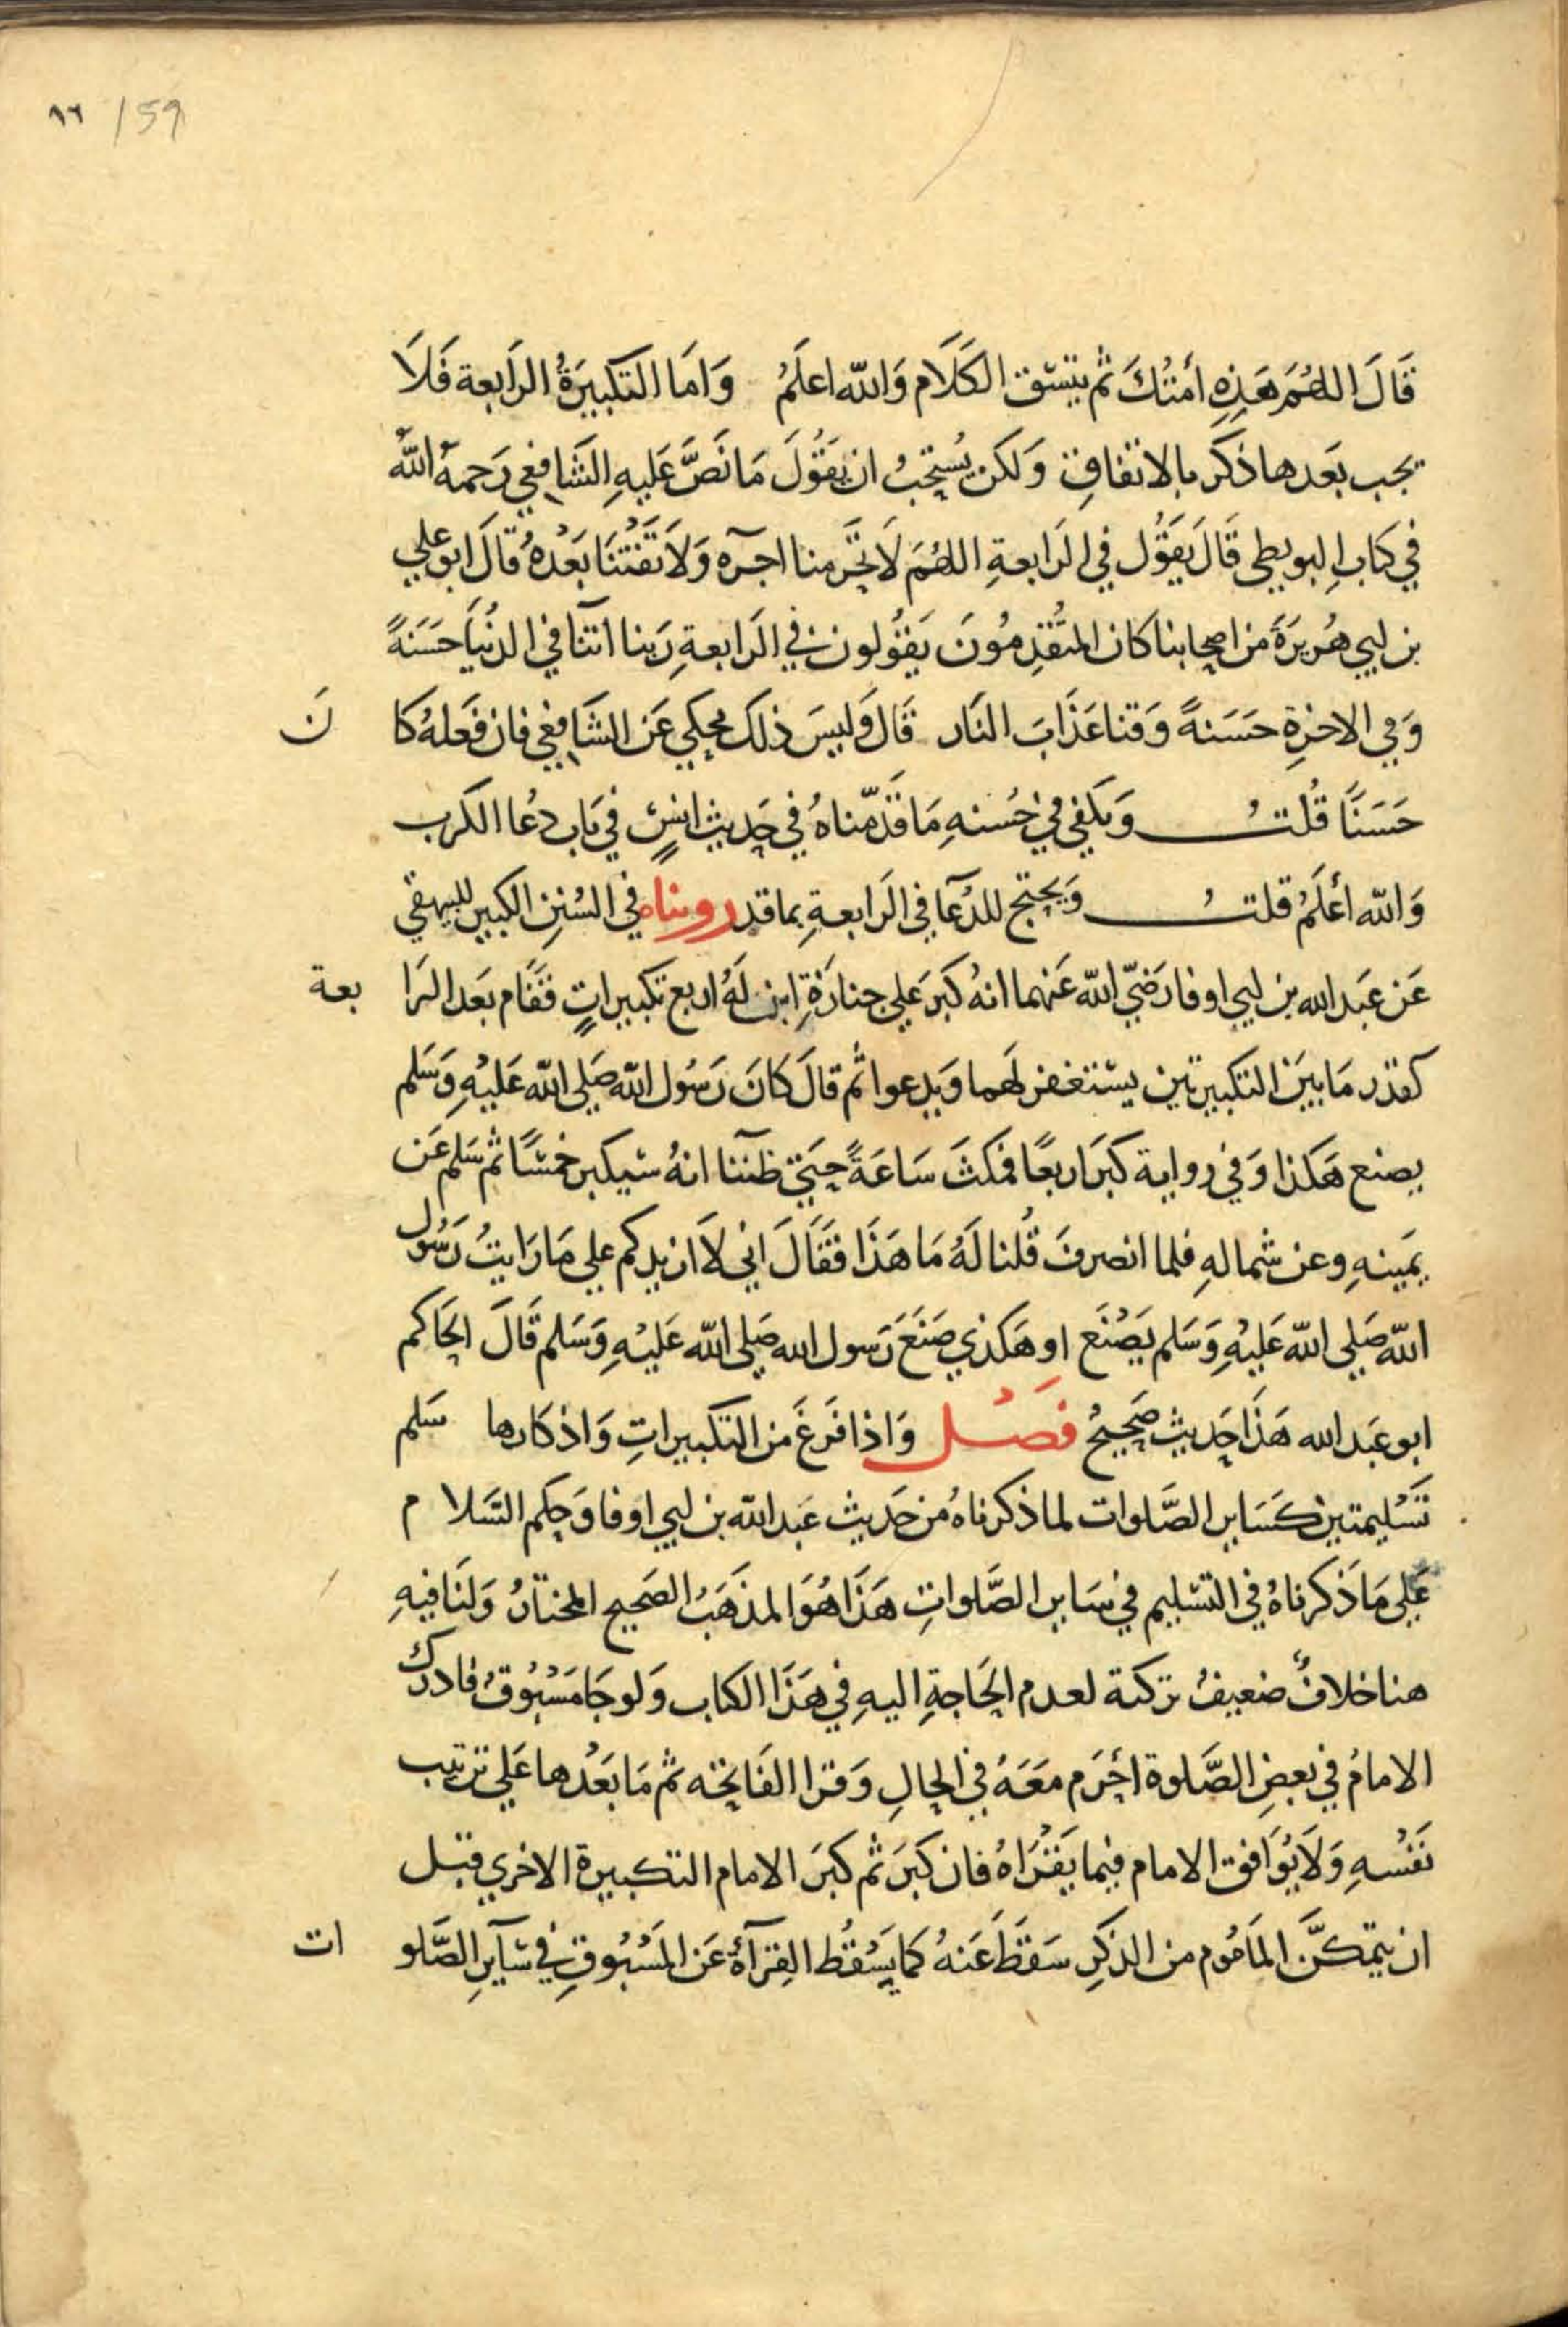 ٨٦ /59
قَالَ اللهُمَ هَذِهِ أمتُكَ ثم يتسّق الكَلَام وَالله اعلَمُ وَامَا التكبيرَةُ الرَابعة فَلَا
يجب بَعَدها ذكر بالاتفاقِ وَلكن يُستحَبُ ان يقَوُلَ مَا نَصَّ عَليهِ الشَافِعي رَحمهُ اللّه
في كتابِ البويطي قَالَ يَقوُل في الرَابعةِ اللهُمَ لَا تحَرمنا اجرَه وَلَا تَفْتُنَّا بَعْدهُ قالَ ابو علي
بن ابي هُريرَةَ من اصحابنا كان المتقدِمُونَ يَقوُلون في الرَابعةِ رَبنا اتنا في الدُنيَا حَسَنةً
وَفي الاخرةِ حَسَنةً وَقنا عَذَابَ النَار قَال وَليسَ ذلك بمحكي عَن الشَافعِي فان فَعَلهُ كا نَ
حَسَنًا قُلتُ وَيكفي في حُسنهِ مَا قَدّمناهُ في حَديث انسٍ في بَاب دعُا الكرب
وَالله أعلَمُ قلتُ وَيحتج للدُعآ في الرَابعةِ بما قد رويناه في السُنن الكبير للبيهقي
عَن عَبَد الله بن ابي اوفا رَضيّ اللّه عَنهما انهُ كبرَ علي جنازَةِ ابن لَهُ اربع تكبيراتٍ فقَام بَعَد الرَا بعة
كقدر مَا بيَن التكبيرتين يستغفر لَهما وَيدعوا ثم قالَ كانَ رَسُول اللّه صَلي اللّه عَليْهِ وَسَلم
يصنع هَكذا وَفي رواية كبرَ اربعًا فمكثَ سَاعَةً حَتي ظننا انهُ سيكبر خمسًا ثم سَلم عَن
يمَينهِ وعن شمالهِ فلما انصرفَ قُلنا لَهُ مَا هَذَا فقَالَ اني لَا ازيدكم علي مَا رَايتُ رَسُول
اللّه صَلي اللّه عَليْهِ وَسَلم يَصْنَع او هَكذي صَنَعَ رَسول الله صَلي اللّه عَليْهِ وَسَلم قَالَ الحَاكم
ابو عَبَد الله هَذَا حَديث صَحيحُ فصَل وَاذا فَرَغَ من التكبيراتِ وَاذكارها سَلم
تَسْليمتين كسَاير الصَّلوات لما ذكرناهُ من حَديث عَبد اللّه بن ابي اوفا وَحكم السَلا م
عَلي مَا ذكرناهُ في التسليم في سَاير الصَّلواتِ هَذَا هُوَ المذهَبُ الصَحيح المختارُ وَلنَا فيهِ
هنا خلافٌ ضعيفُ تركتة لعدم الحَاجةِ اليهِ في هَذَا الكتاب وَلو جَا مَسْبُوقُ فادرك
الامامُ في بعضِ الصَّلوة احْرَم معَهُ في الحالِ وَقرا الفَاتحَه ثم مَا بَعَدُها عَلي ترتيب
نَفْسهِ وَلَا يُوَافق الامام فيما يَقْرَاهُ فان كبرَ ثم كبرَ الامام التكبيرة الاخري قبل
ان يتمكنَّ المامُوم من الذكرِ سَقَطَ عَنهُ كما يَسْقُط القِرَآةُ عَن المسْبُوقِ في سَآيرِ الصَّلو ات